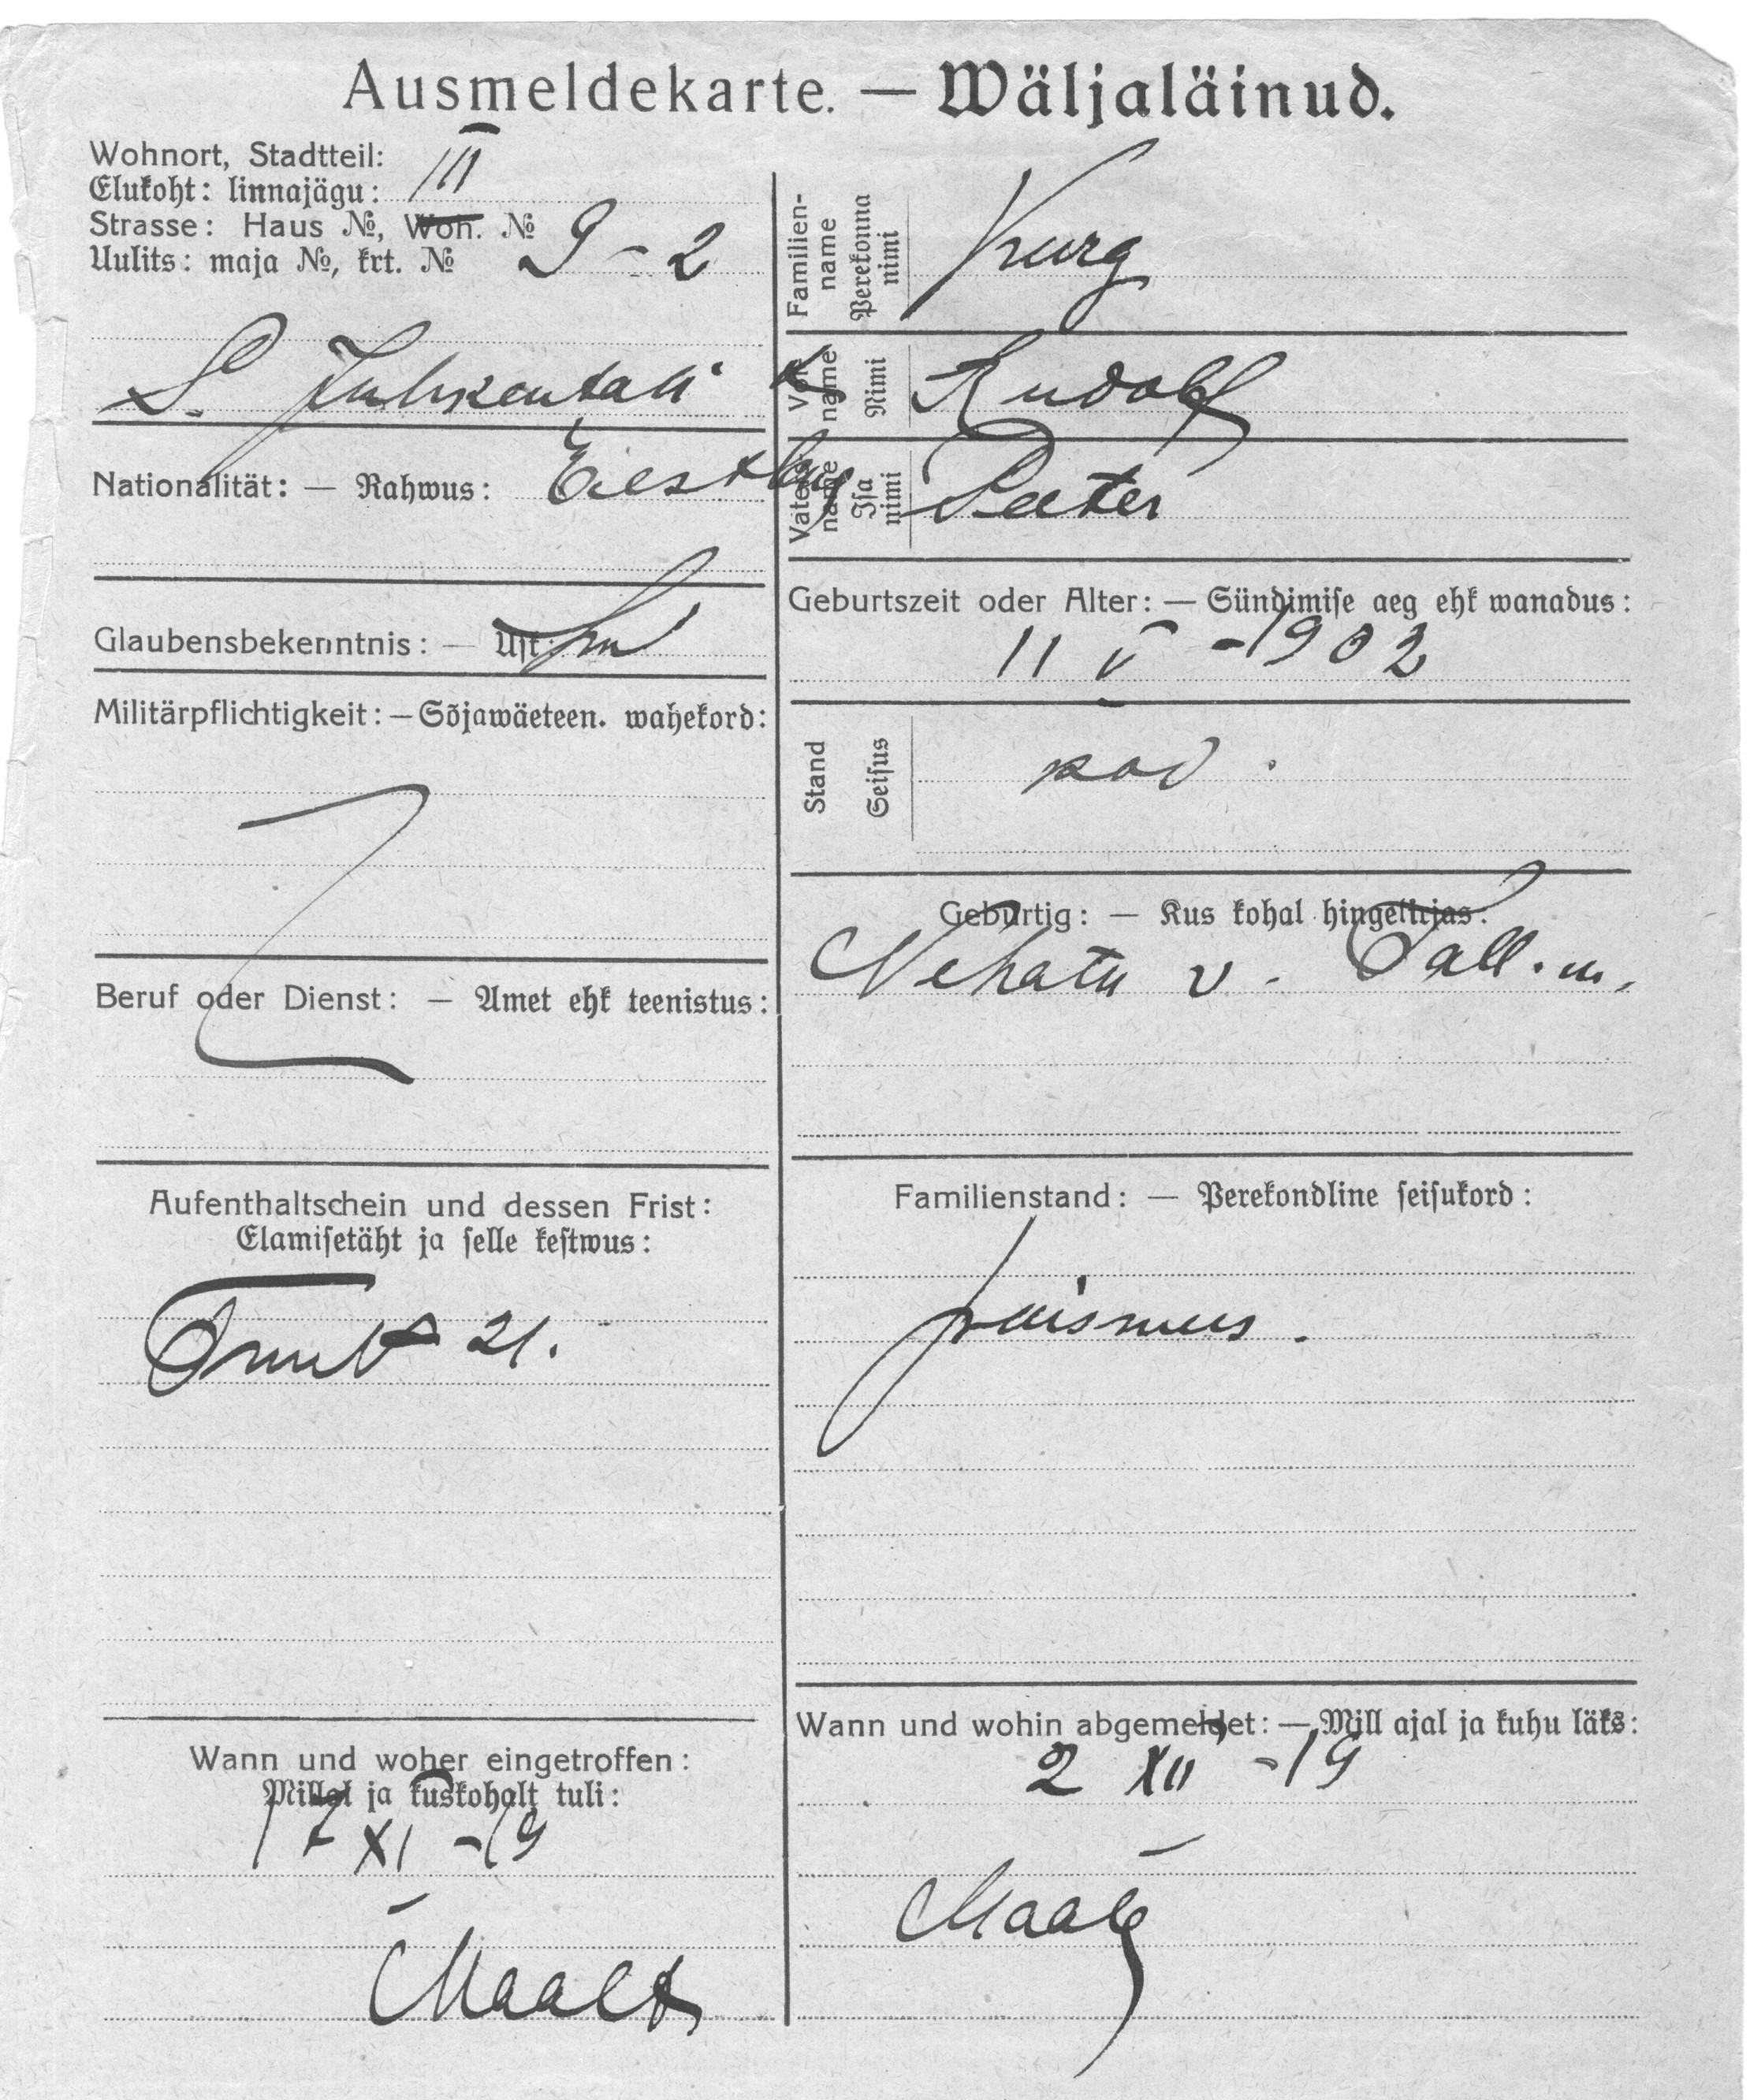 Ausmeldekarte. — Wäljaläinud.
Wohnort, Stadtteil:
Elukoht: linnajägu: III
Strasse: Haus №, Woh. №
Uulits: maja №, krt. № 9 - 2
S. Juhkentali t
Nationalität: — Rahwus: Eestlane
Glaubensbekenntnis: — Usk:
Militärpflichtigkeit: — Sõjawäeteen. wahekord:
Beruf oder Dienst: — Amet ehk teenistus:
Aufenthaltschein und dessen Frist:
Elamisetäht ja selle kestwus:
21.
Wann und woher eingetroffen:
Millal ja kuskohalt tuli:
17 XI - 19
Maalt
Familien-name
Perekonna nimi
Kurg
Vor-name
Nimi
Rudolf
Vaters-name
Isa nimi
Peeter
Geburtszeit oder Alter: — Sündimise aeg ehk wanadus:
11 V - 1902
Stand
Seisus
Gebürtig: — Kus kohal hingekirjas:
Nehatu v. Tall. m.
Familienstand: — Perekondline seisukord:
poismees.
Wann und wohin abgemeldet: — Mill ajal ja kuhu läks:
2 XII - 19
Maale